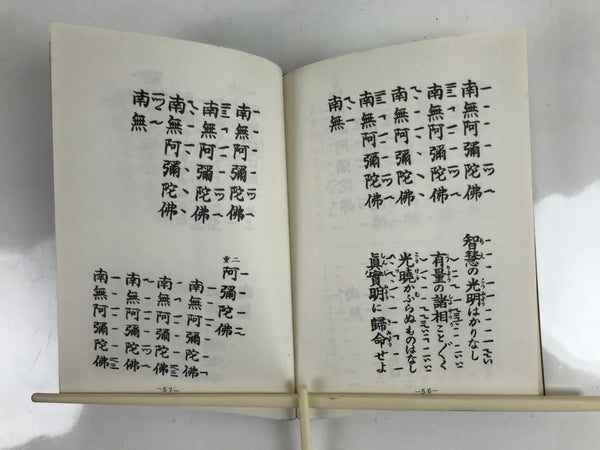 南無阿彌陀佛
南無阿彌陀佛
南無阿彌陀佛
南無阿彌陀佛
南無
智慧の光明はかりなし
有量の諸相こと〴〵く
光曉かぶらぬものはなし
眞實明に歸命せよ
—56—
南無阿彌陀佛
南無阿彌陀佛
南無阿彌陀佛
南無
二重
阿彌陀佛
南無阿彌陀佛
南無阿彌陀佛
南無阿彌陀佛
南無阿彌陀佛
—57—